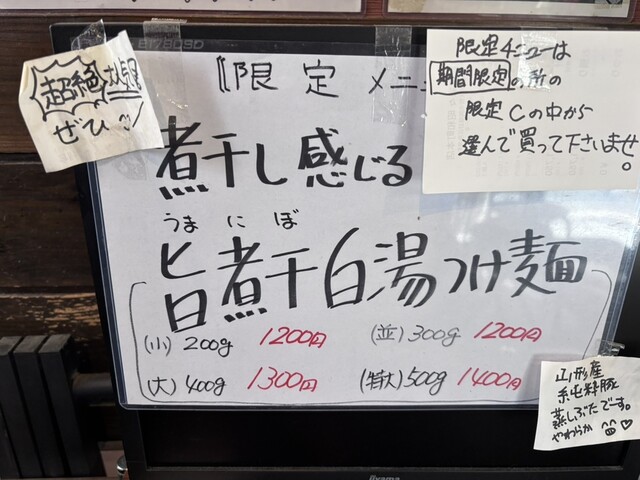 超絶
ぜひ
限定メニュー
限定メニューは
期間限定の所の
限定Cの中から
選んで買って下さいませ。
煮干し感じる
うまにぼ
旨煮干白湯つけ麺
(小)200g 1200円 (並)300g 1200円
(大)400g 1300円 (特大)500g 1400円
山形産
純粋豚
蒸しぶたです。
やわらか
iiyama